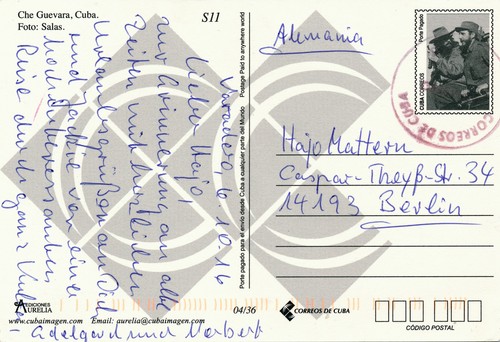 Che Guevara, Cuba.
Foto: Salas.
S11
Varadero, 16.10.16
Lieber Hajo,
zur Erinnerung an alte
Zeiten mit herzlichen
Urlaubsgrüßen an Dich
und
von einer
Reise durch ganz Kuba
- Edelgard und Norbert
EDICIONES
AURELIA
www.cubaimagen.com Email: aurelia@cubaimagen.com
04/36
Porte pagado para el envío desde Cuba a cualquier parte del Mundo Postage Paid to anywhere world
Alemania
Porte Pagado
CUBA CORREOS
CORREOS DE CUBA
Hajo Mattern
Caspar-Theyß-Str. 34
14193 Berlin
CORREOS DE CUBA
CÓDIGO POSTAL